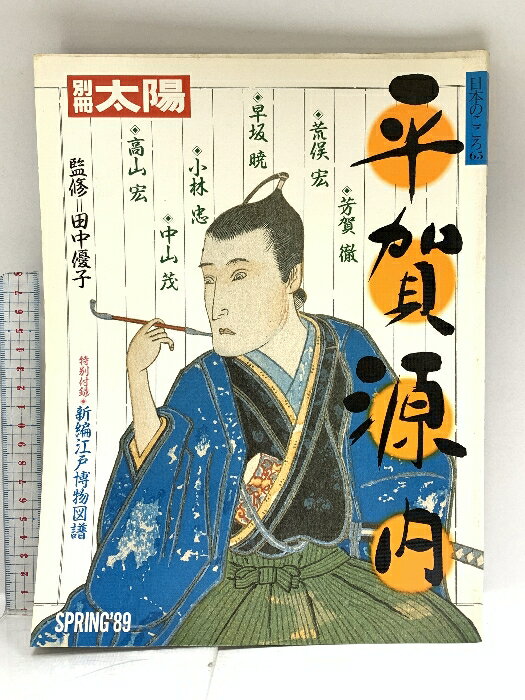 別冊太陽
日本のこころ65
平賀源内
荒俣 宏
芳賀 徹
早坂 暁
小林 忠
中山 茂
高山 宏
監修=田中優子
特別付録・新編江戸博物図譜
SPRING'89